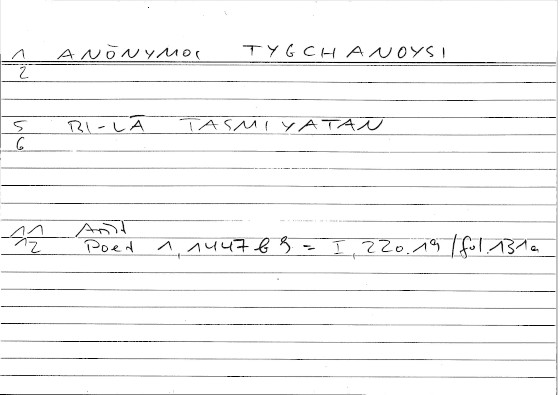 1 ANŌNYMOS TYGCHANOYSI
2
5 BI-LĀ TASMIYATAN
6
11 Arist
12 Poet 1, 1447 b 9 = I, 220.19 / fol. 131a